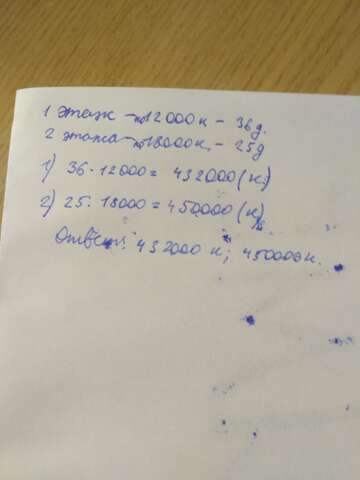 1 этаж - по 12000 к - 36 д.
2 этажа - по 18000 к. - 25 д
1) 36 · 12000 = 432000 (к.)
2) 25 · 18000 = 450000 (к)
Ответ: 432000 к; 450000 к.